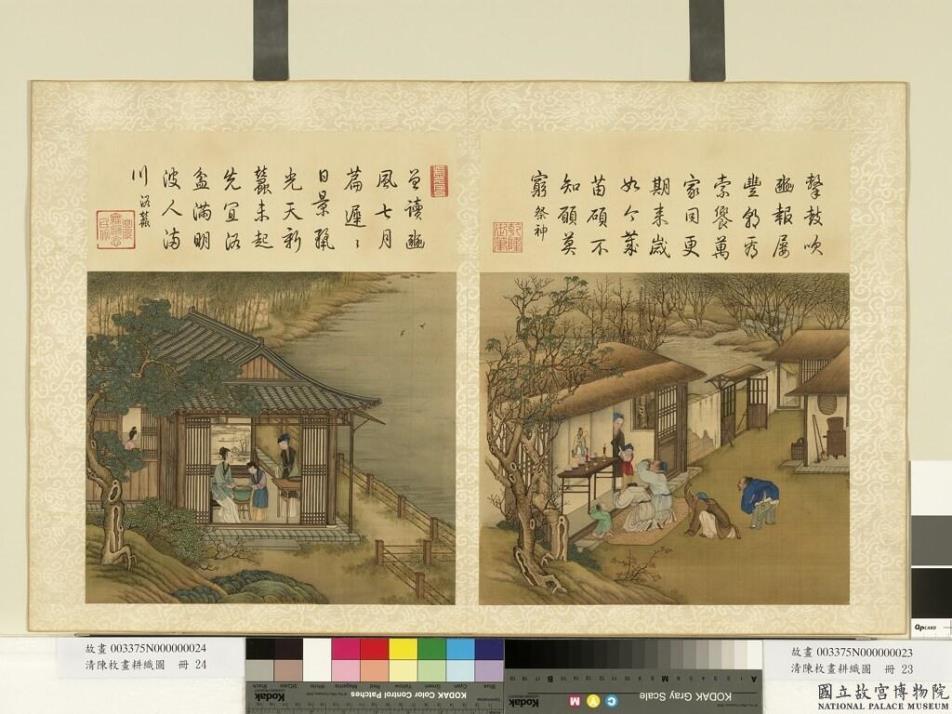 擊鼓吹
豳報屢
豐為
索饗萬
家同更
期來歲
如今歲
苗碩不
知願莫
窮 祭神
曾讀豳
風七月
篇遲〻
日景麗
光天新
蠶未起
先宜浴
盆滿明
波人滿
川 浴蠶
故畫 003375N000000024
清陳枚畫耕織圖 冊 24
KODAK Color Control Patches
Kodak
KODAK Gray Scale
Kodak
C Y M
A
M
B
故畫 003375N000000023
清陳枚畫耕織圖 冊 23
國立故宮博物院
NATIONAL PALACE MUSEUM